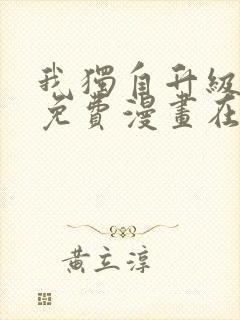 我獨自升級
免費漫畫在
黃立淳